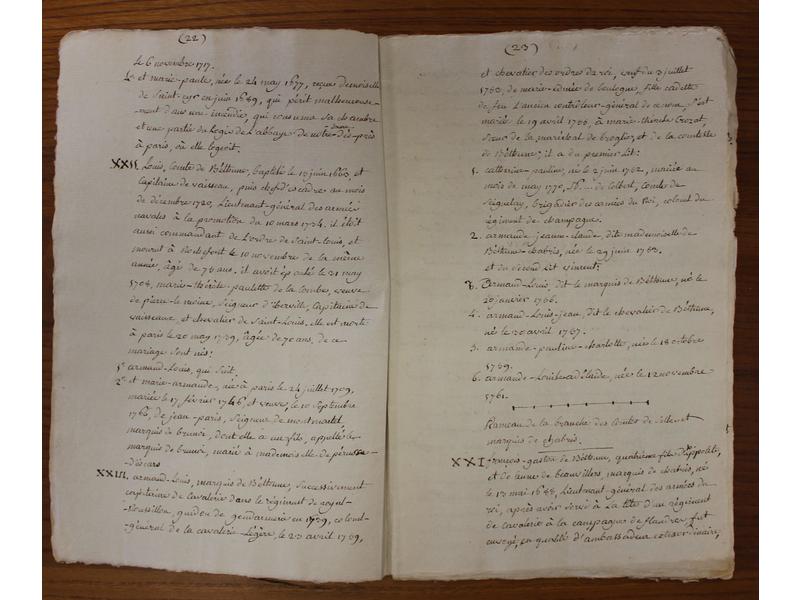 (22)
le 6 novembre 1717.
et marie-paule, née le 24 may 1677, reçue demoiselle
de Saint-cyr en juin 1689, qui périt malheureuse-
-ment dans une incendie, qui consuma sa chambre
et une partie du Logis de L'abbaye de notre-dame-des-près
à paris, où elle logeoit.
XXII. Louis, Comte de Béthune, baptisé le 15 juin 1663, et
Capitaine de vaisseau, puis chef d'escadre au mois
de décembre 1720, Lieutenant-général des armées
navales à la promotion du 10 mars 1734. il étoit
aussi commandant de L'ordre de Saint-Louis, et
mourut à Rochefort le 10 novembre de la même
année, âgé de 75 ans. il avoit épousé le 31 may
1708, marie-thérèse-paulette de la Combes, veuve
de pierre-le moine, Seigneur d'iberville, Capitaine de
vaisseaux, et chevalier de Saint-Louis. elle est morte
à paris le 20 may 1739, âgée de 70 ans, de ce
mariage Sont nés:
1° armand-Louis, qui Suit.
2° et marie-armande, née à paris le 24 juillet 1709,
mariée le 17 février 1746, et veuve, le 10 Septembre
de jean-paris, Seigneur de montmartel,
marquis de brunoi, dont elle a eu fils, appellé le
marquis de brunoi, marié à mademoiselle de pérusse-
-d'escars
XXIII. armand-Louis, marquis de Béthune, Successivement
capitaine de cavalerie dans le régiment de royal-
-Roussillon, guidon de gendarmerie en 1739, colonel-
-général de la cavalerie-Légère, le 23 avril 1759,
(23)
et chevalier des ordres du roi, veuf du 3 juillet
de marie-edmée de boulogne, fille cadette
de feu L'ancien contrôleur-général de ce nom. S'est
marié le 19 avril à marie-thérèse Crozat,
Sœur de la maréchal de broglie, et de la comtesse
de Béthune; il a du premier Lit:
1. catherine-pauline, née le 2 juin 1752, mariée au
mois de may 1770, à M. ... de Colbert, Comte de
Seignelay, brigadier des armées du Roi, colonel du
régiment de champagne.
2. armande-jeanne-claude, dite mademoiselle de
Béthune-chabris, née le 29 juin 1753.
et du Second Lit vinrent;
3. Armand-Louis, dit le marquis de Béthune, né le
20 janvier 1756.
4. armand-Louis-jean, dit le chevalier de Béthune,
né le 20 avril 1757.
5. armande-pauline-charlotte, née le 18 octobre
1759.
6. armande-Louise-adélaïde, née le 12 novembre
1761.
Rameau de la branche des Comtes de Selles et
marquis de chabris.
XXI. françois-gaston de Béthune, quatrième fils d'hippolite,
et de anne de beauvillers, marquis de chabris, né
le 13 mai 1638, Lieutenant-général des armées du
roi, après avoir Servi à la tête d'un régiment
de cavalerie à la campagne de flandres, fut
envoyé, en qualité d'ambassadeur extraordinaire,